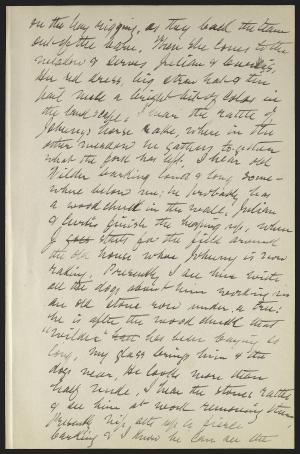 on the hay rigging, as they back the team
out of the barn. When she comes to the
meadow & serves Julian & Curtis,
her red dress, big straw hat & tin
pail make a bright bit of color in
the landscape. I hear the rattle of
Johnny's horse rake, where in the
other meadow he gathers together
what the fork has left. I hear old
barking loud & long some-
where below me; he probably has
a woodchuck in the wall. Julian
& Curtis finish the heaping up, when
J goes starts for the field around
an old house where Johnny is now
raking. Presently I see him with
all the dogs about him working in
an old stone row under a tree:
he is after the woodchuck that
has been baying so
long, my glass brings him & the
dogs near. He looks more than
half nude. I hear the stones rattle
& see him at work removing them.
Presently "Nig" sets up a fierce
barking & I know he can see the